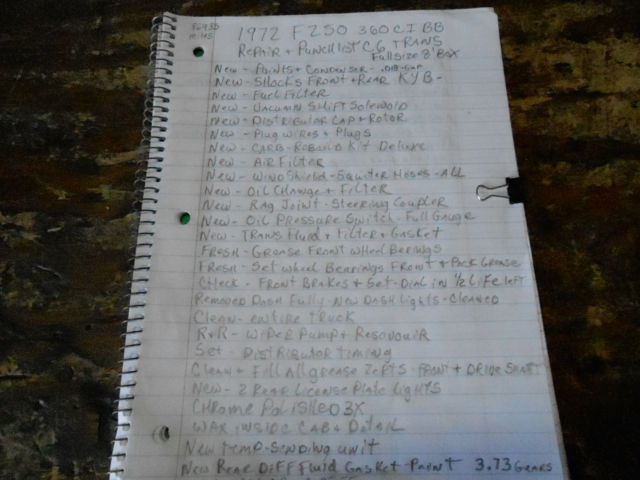 1972 F250 360 CI BB
Repair + Punchlist C6 TRANS
Full Size 8' Box
New - Points + Condenser -
New - Shocks Front + Rear KYB -
New - Fuel Filter
New - Vacumn Shift Solenoid
New - Distributor Cap + Rotor
New - Plug wires + Plugs
New - Carb - Rebuild Kit Deluxe
New - Air Filter
New - WindShield - Squiter Hoses - ALL
New - Oil Change + Filter
New - Rag Joint - Steering Coupler
New - Oil Pressure Switch - Full Gauge
New - Trans Fluid + Filter + Gasket
Fresh - Grease Front Wheel Berings
Fresh - Set wheel Bearings Front + Pack Grease
Check - Front Brakes + Set - Dial in 1/2 Life left
Removed Dash Fully - New Dash Lights - Cleaned
Clean - entire Truck
R+R - Wiper Pump + Resovouir
Set - Distributor Timing
Clean + Fill All grease Zerts - Front + Drive Shaft
New - 2 Rear License Plate Lights
Chrome Polished 3X
Wax inside Cab + Detail
New Temp-Sending unit
New Rear Diff Fluid Gasket - Paint 3.73 Gears